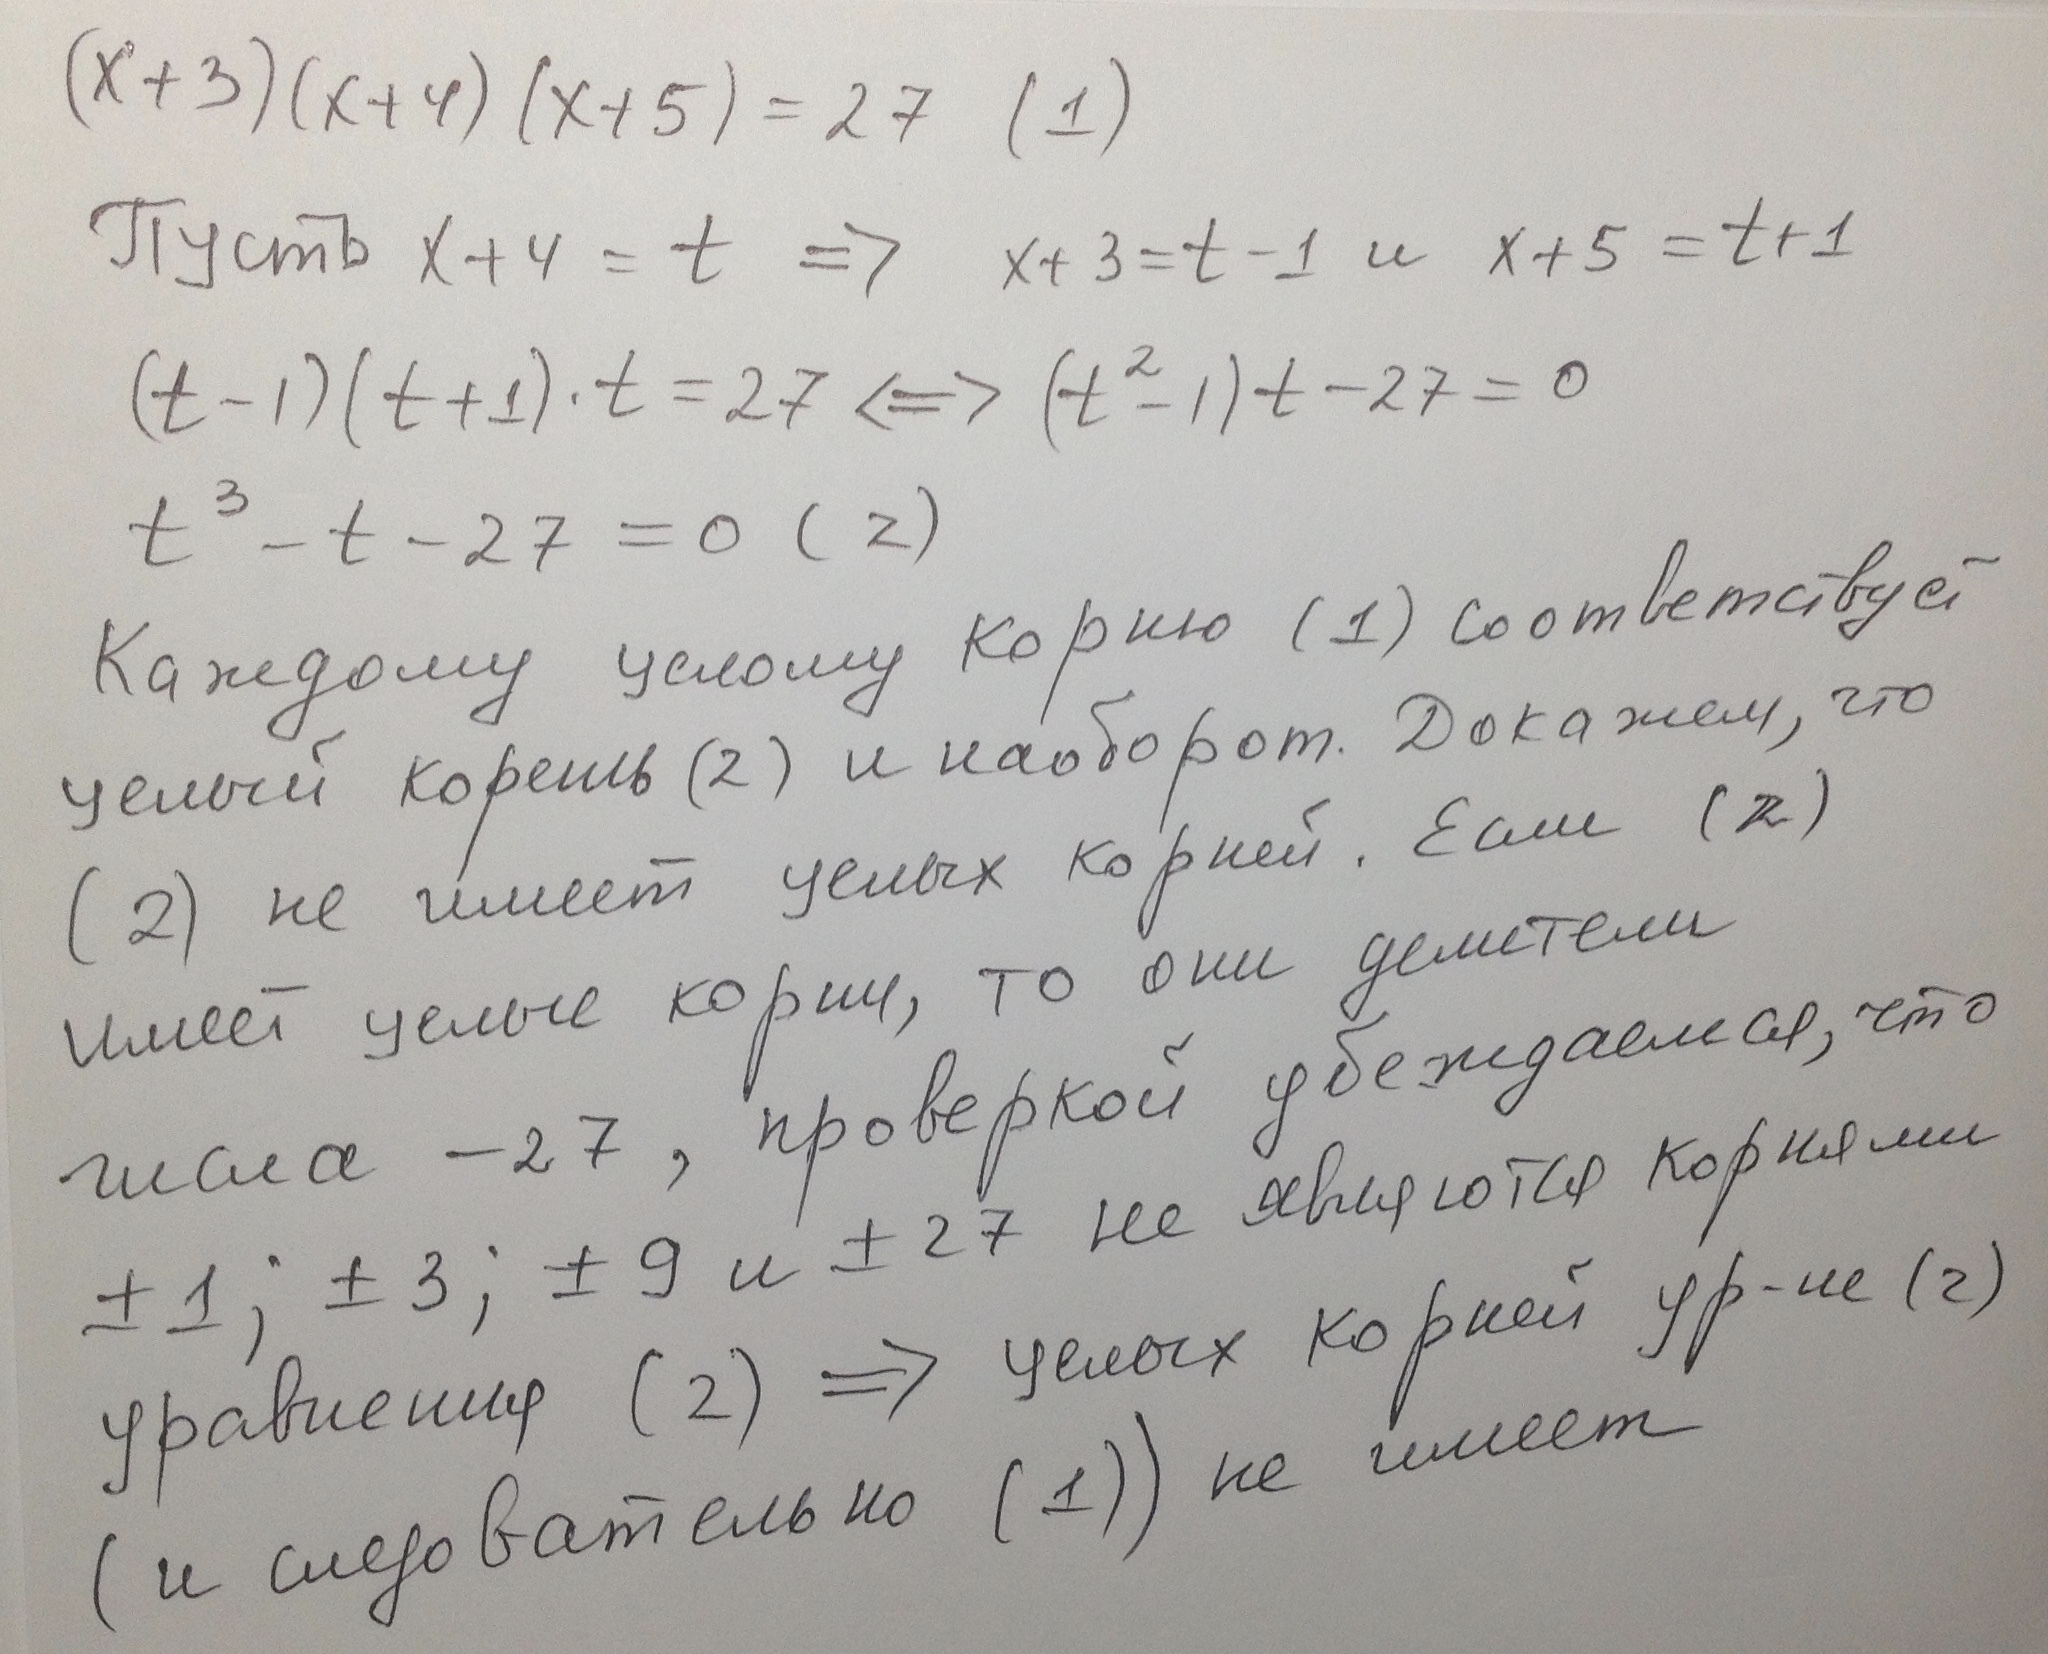 (x+3)(x+4)(x+5)=27 (1)
Пусть x+4=t => x+3=t-1 и x+5=t+1
(t-1)(t+1)·t=27 <=> (t²-1)t-27=0
t³-t-27=0 (2)
Каждому целому корню (1) соответствует
целый корень (2) и наоборот. Докажем, что
(2) не имеет целых корней. Если (2)
имеет целые корни, то они делители
числа -27, проверкой убеждаемся, что
±1; ±3; ±9 и ±27 не являются корнями
уравнения (2) => целых корней ур-не (2)
(и следовательно (1)) не имеет